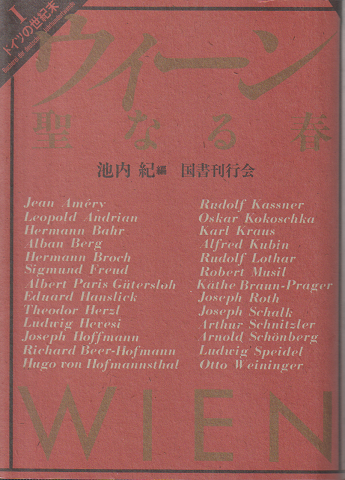 I
ドイツの世紀末
ウィーン
聖なる春
池内 紀 編 国書刊行会
Jean Améry
Leopold Andrian
Hermann Bahr
Alban Berg
Hermann Broch
Sigmund Freud
Albert Paris Gütersloh
Eduard Hanslick
Theodor Herzl
Ludwig Hevesi
Joseph Hoffmann
Richard Beer-Hofmann
Hugo von Hofmannsthal
Rudolf Kassner
Oskar Kokoschka
Karl Kraus
Alfred Kubin
Rudolf Lothar
Robert Musil
Käthe Braun-Prager
Joseph Roth
Joseph Schalk
Arthur Schnitzler
Arnold Schönberg
Ludwig Speidel
Otto Weininger
WIEN